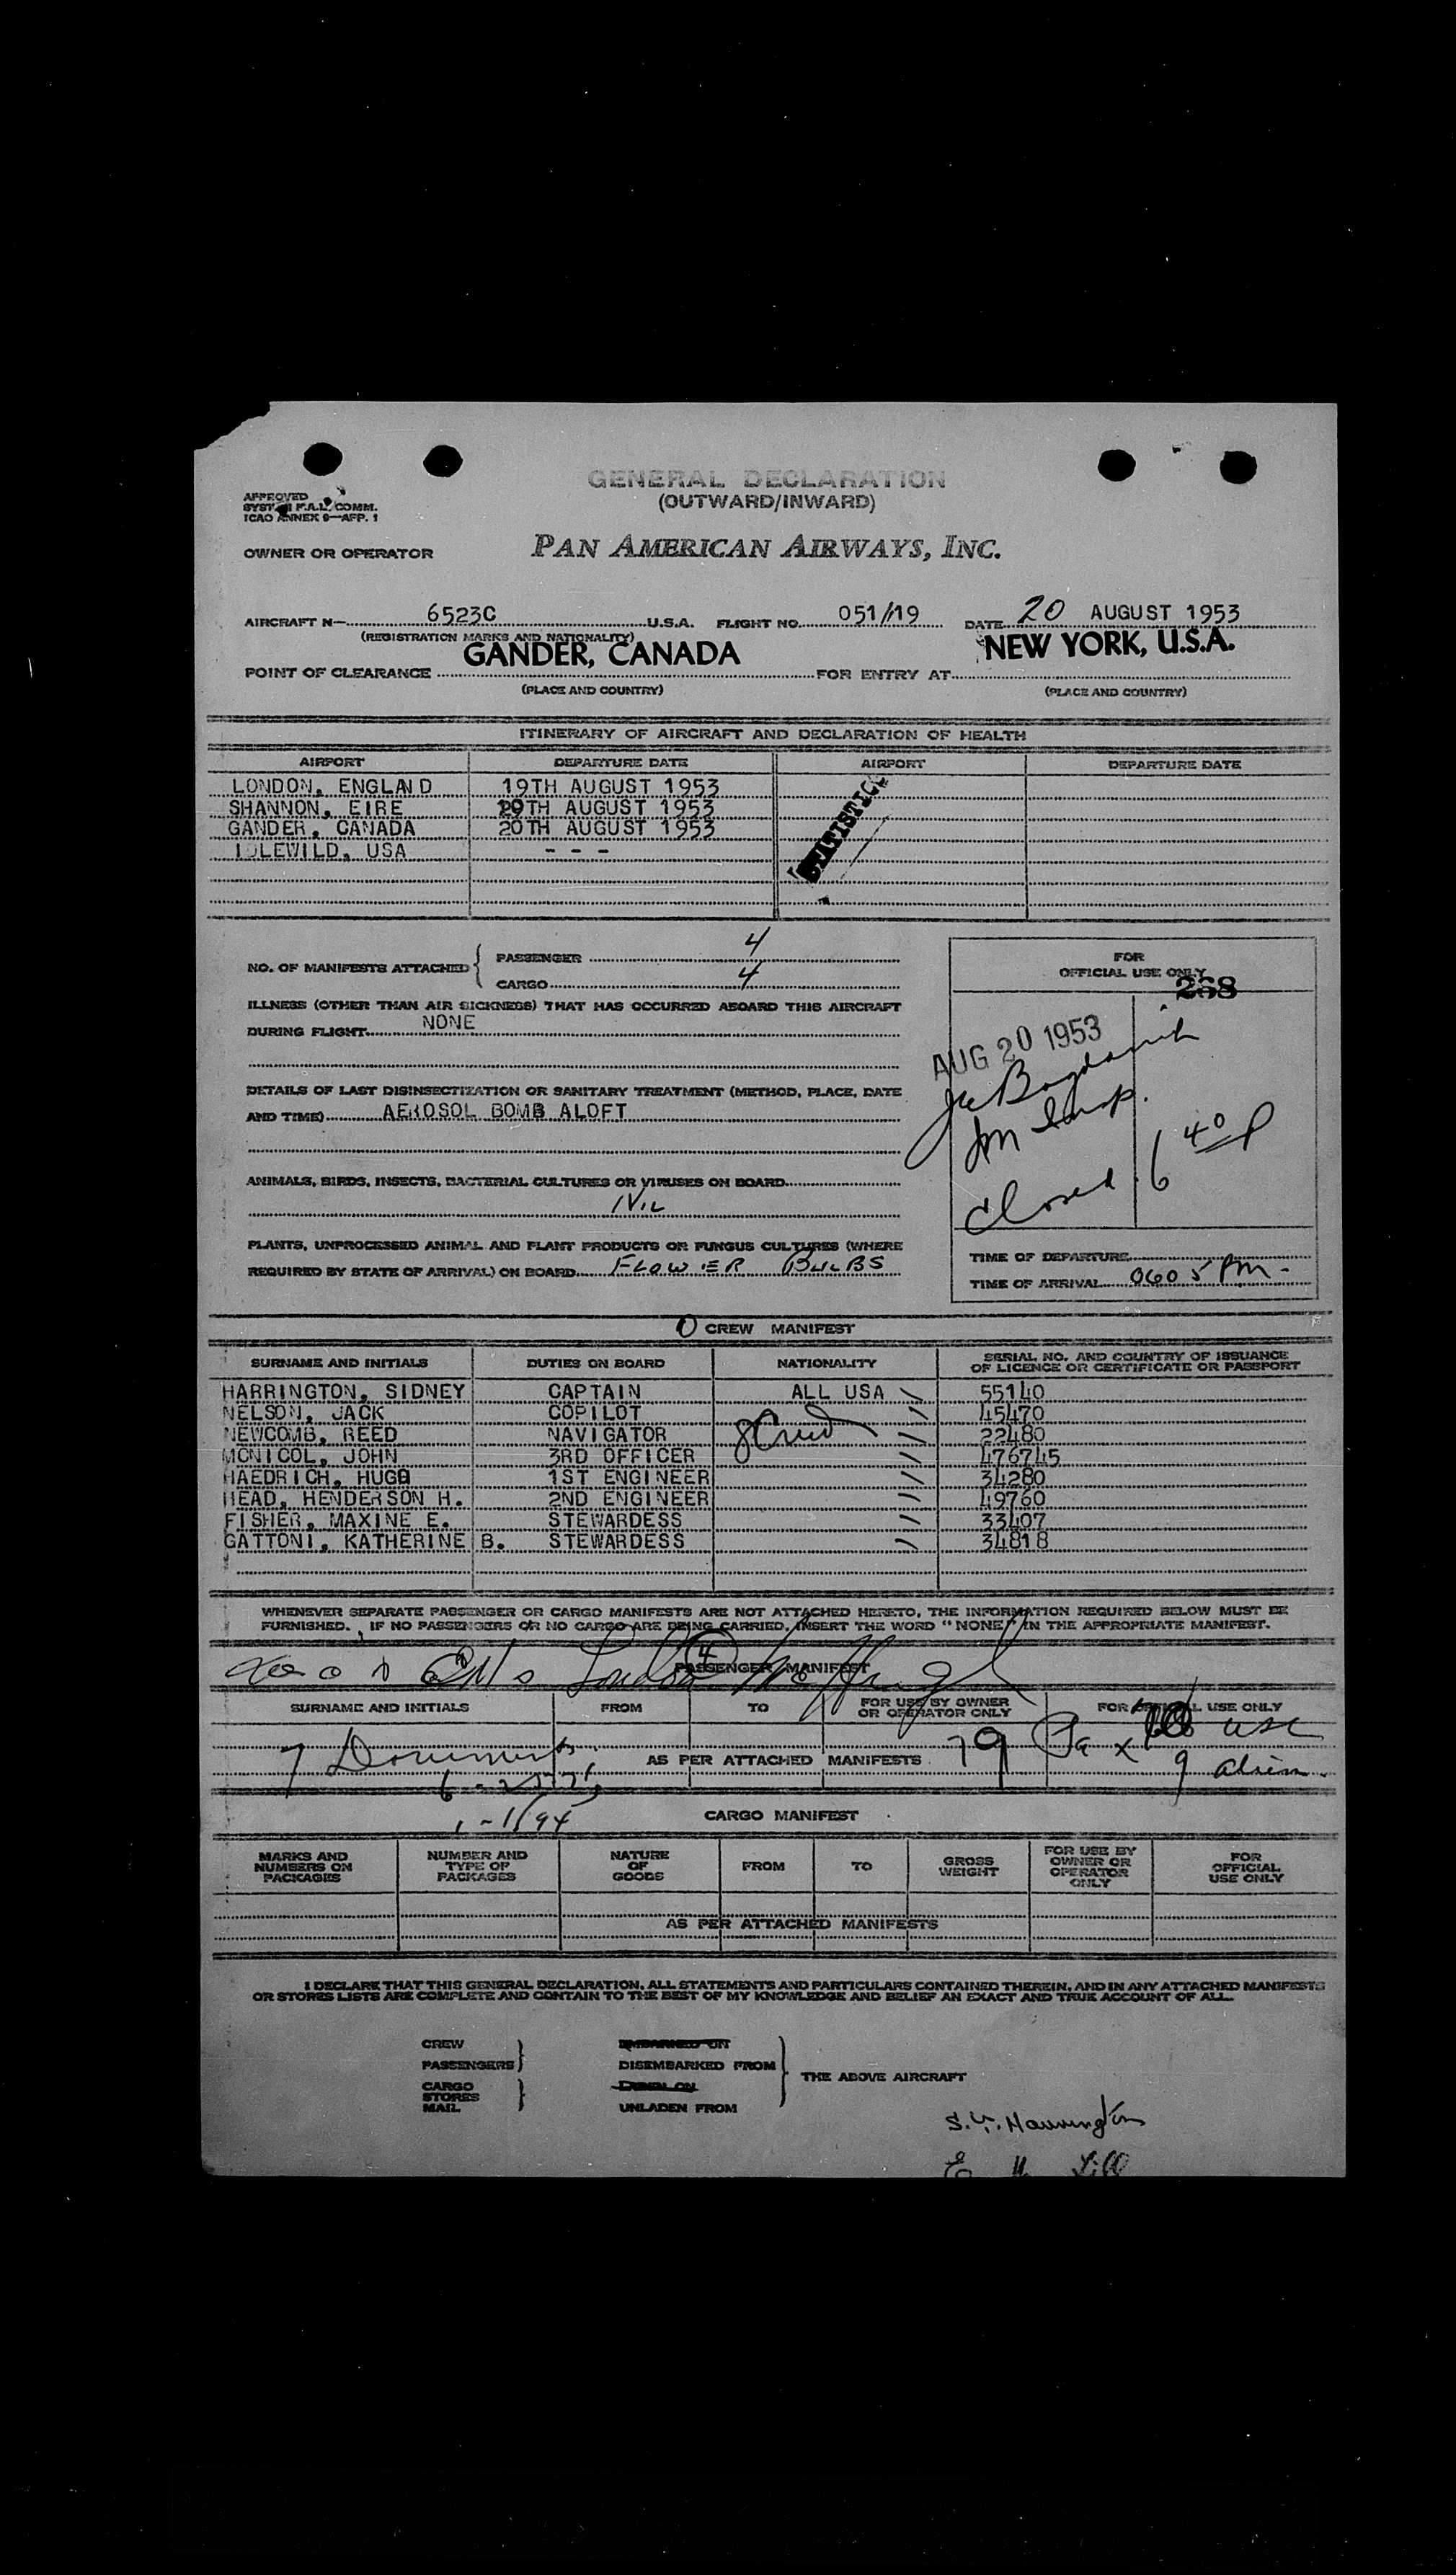 GENERAL DECLARATION
(OUTWARD/INWARD)
APPROVED
F.A.L. COMM.
ICAO ANNEX 9—APP. 1
OWNER OR OPERATOR PAN AMERICAN AIRWAYS, INC.
AIRCRAFT N— 6523C U.S.A. FLIGHT NO. 051/19 DATE 20 AUGUST 1953
(REGISTRATION MARKS AND NATIONALITY)
POINT OF CLEARANCE GANDER, CANADA FOR ENTRY AT NEW YORK, U.S.A.
(PLACE AND COUNTRY) (PLACE AND COUNTRY)
ITINERARY OF AIRCRAFT AND DECLARATION OF HEALTH
AIRPORT DEPARTURE DATE AIRPORT DEPARTURE DATE
LONDON, ENGLAND 19TH AUGUST 1953
SHANNON, EIRE 20TH AUGUST 1953
GANDER, CANADA 20TH AUGUST 1953
IDLEWILD, USA - - -
NO. OF MANIFESTS ATTACHED { PASSENGER 4
CARGO 4
ILLNESS (OTHER THAN AIR SICKNESS) THAT HAS OCCURRED ABOARD THIS AIRCRAFT
DURING FLIGHT NONE
DETAILS OF LAST DISINSECTIZATION OR SANITARY TREATMENT (METHOD, PLACE, DATE
AND TIME) AEROSOL BOMB ALOFT
ANIMALS, BIRDS, INSECTS, BACTERIAL CULTURES OR VIRUSES ON BOARD
NIL
PLANTS, UNPROCESSED ANIMAL AND PLANT PRODUCTS OR FUNGUS CULTURES (WHERE
REQUIRED BY STATE OF ARRIVAL) ON BOARD FLOWER BULBS
FOR
OFFICIAL USE ONLY
268
AUG 20 1953
Closed 6 40 P
TIME OF DEPARTURE
TIME OF ARRIVAL 0605 Pm
CREW MANIFEST
SURNAME AND INITIALS DUTIES ON BOARD NATIONALITY SERIAL NO. AND COUNTRY OF ISSUANCE
OF LICENCE OR CERTIFICATE OR PASSPORT
HARRINGTON, SIDNEY CAPTAIN ALL USA 55140
NELSON, JACK COPILOT 45470
NEWCOMB, REED NAVIGATOR 22480
MCNICOL, JOHN 3RD OFFICER 476745
HAEDRICH, HUGO 1ST ENGINEER 34280
HEAD, HENDERSON H. 2ND ENGINEER 49760
FISHER, MAXINE E. STEWARDESS 33407
GATTONI, KATHERINE B. STEWARDESS 34818
WHENEVER SEPARATE PASSENGER OR CARGO MANIFESTS ARE NOT ATTACHED HERETO, THE INFORMATION REQUIRED BELOW MUST BE
FURNISHED. IF NO PASSENGERS OR NO CARGO ARE BEING CARRIED, INSERT THE WORD "NONE" IN THE APPROPRIATE MANIFEST.
PASSENGER MANIFEST
SURNAME AND INITIALS FROM TO FOR USE BY OWNER
OR OPERATOR ONLY FOR OFFICIAL USE ONLY
7 Documents AS PER ATTACHED MANIFESTS 79 Pax
9 alien
CARGO MANIFEST
MARKS AND
NUMBERS ON
PACKAGES
NUMBER AND
TYPE OF
PACKAGES
NATURE
OF
GOODS
FROM
TO
GROSS
WEIGHT
FOR USE BY
OWNER OR
OPERATOR
ONLY
FOR
OFFICIAL
USE ONLY
AS PER ATTACHED MANIFESTS
I DECLARE THAT THIS GENERAL DECLARATION, ALL STATEMENTS AND PARTICULARS CONTAINED THEREIN, AND IN ANY ATTACHED MANIFESTS
OR STORES LISTS ARE COMPLETE AND CONTAIN TO THE BEST OF MY KNOWLEDGE AND BELIEF AN EXACT AND TRUE ACCOUNT OF ALL.
CREW EMBARKED ON
PASSENGERS DISEMBARKED FROM
THE ABOVE AIRCRAFT
CARGO LADEN ON
STORES
MAIL UNLADEN FROM
S. Y. Harrington